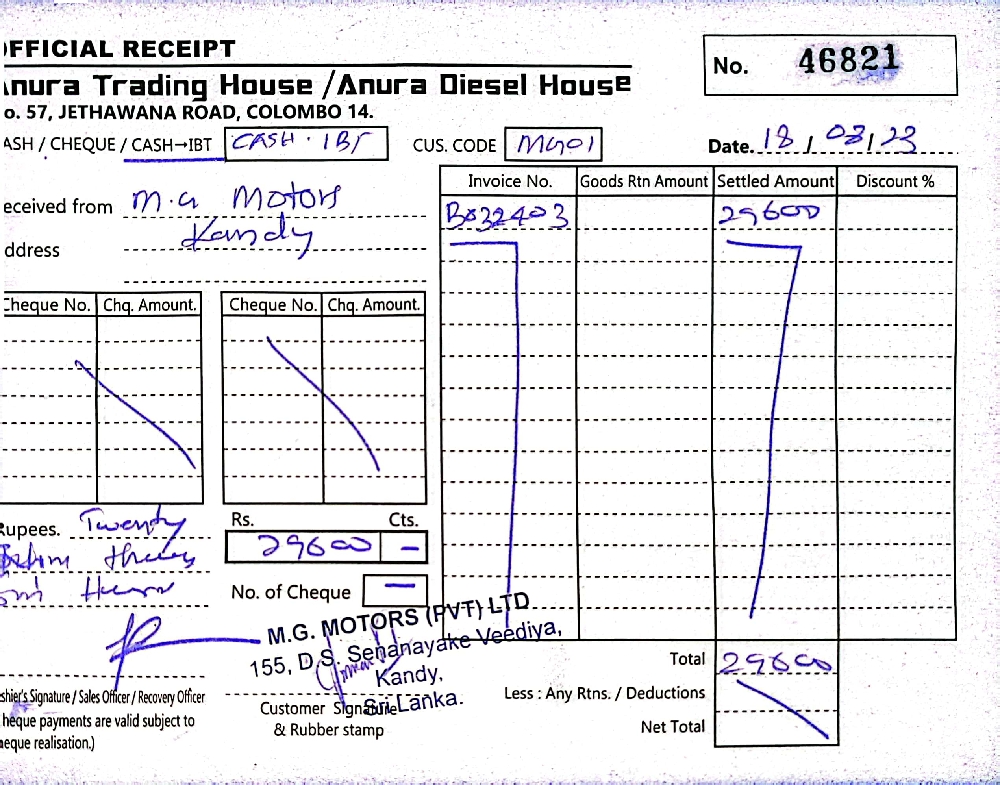 OFFICIAL RECEIPT
No. 46821
Anura Trading House / Anura Diesel House
o. 57, JETHAWANA ROAD, COLOMBO 14.
ASH / CHEQUE / CASH→IBT CASH · IBT CUS. CODE MG01 Date. 18 / 03 / 23
eceived from M.G Motors
ddress Kandy
Invoice No. Goods Rtn Amount Settled Amount Discount %
B032403 29600
Cheque No. Chq. Amount. Cheque No. Chq. Amount.
Rupees. Twenty
Rs. Cts.
29600 –
No. of Cheque –
M.G. MOTORS (PVT) LTD
155, D.S. Senanayake Veediya,
Kandy,
Sri Lanka.
Total 29600
Less : Any Rtns. / Deductions
Net Total
shier's Signature / Sales Officer / Recovery Officer
heque payments are valid subject to
eque realisation.)
Customer Signature
& Rubber stamp